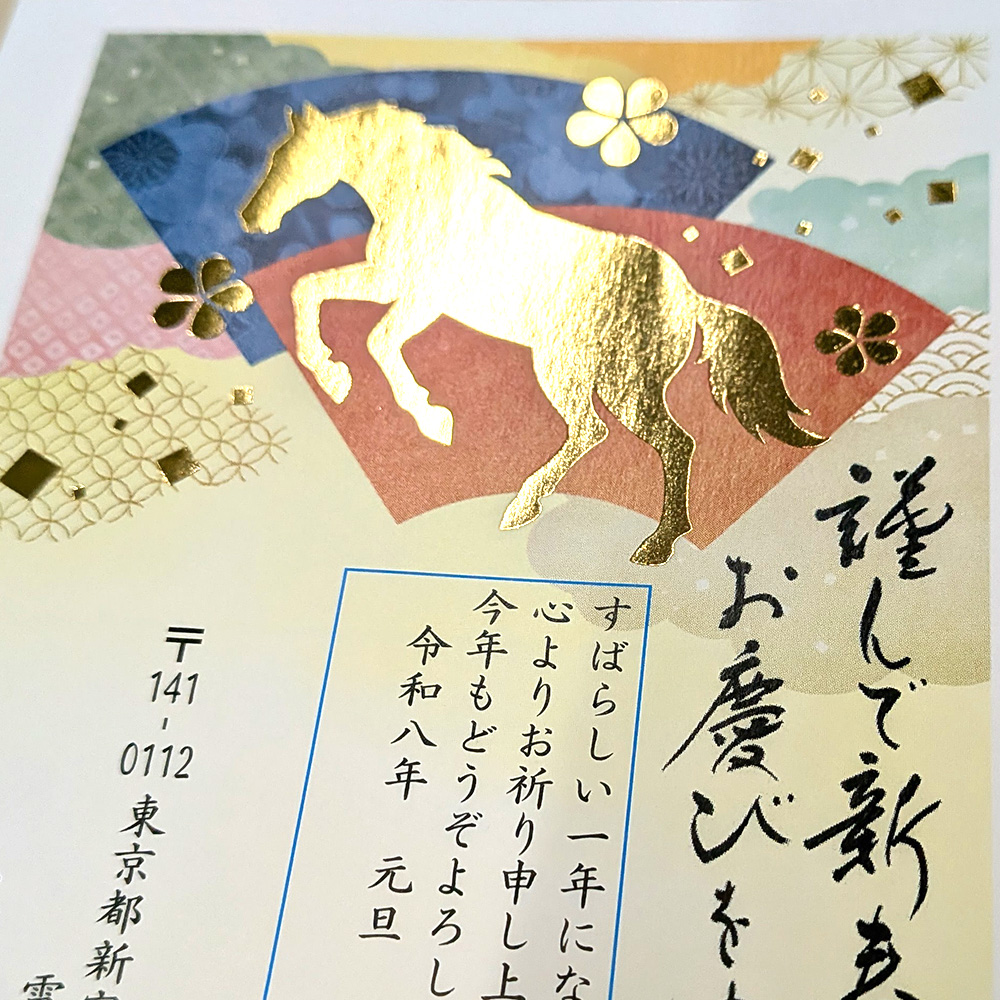 謹んで新春
お慶びを
すばらしい一年にな
心よりお祈り申し上
今年もどうぞよろし
令和八年 元旦
〒141-0112
東京都新宿